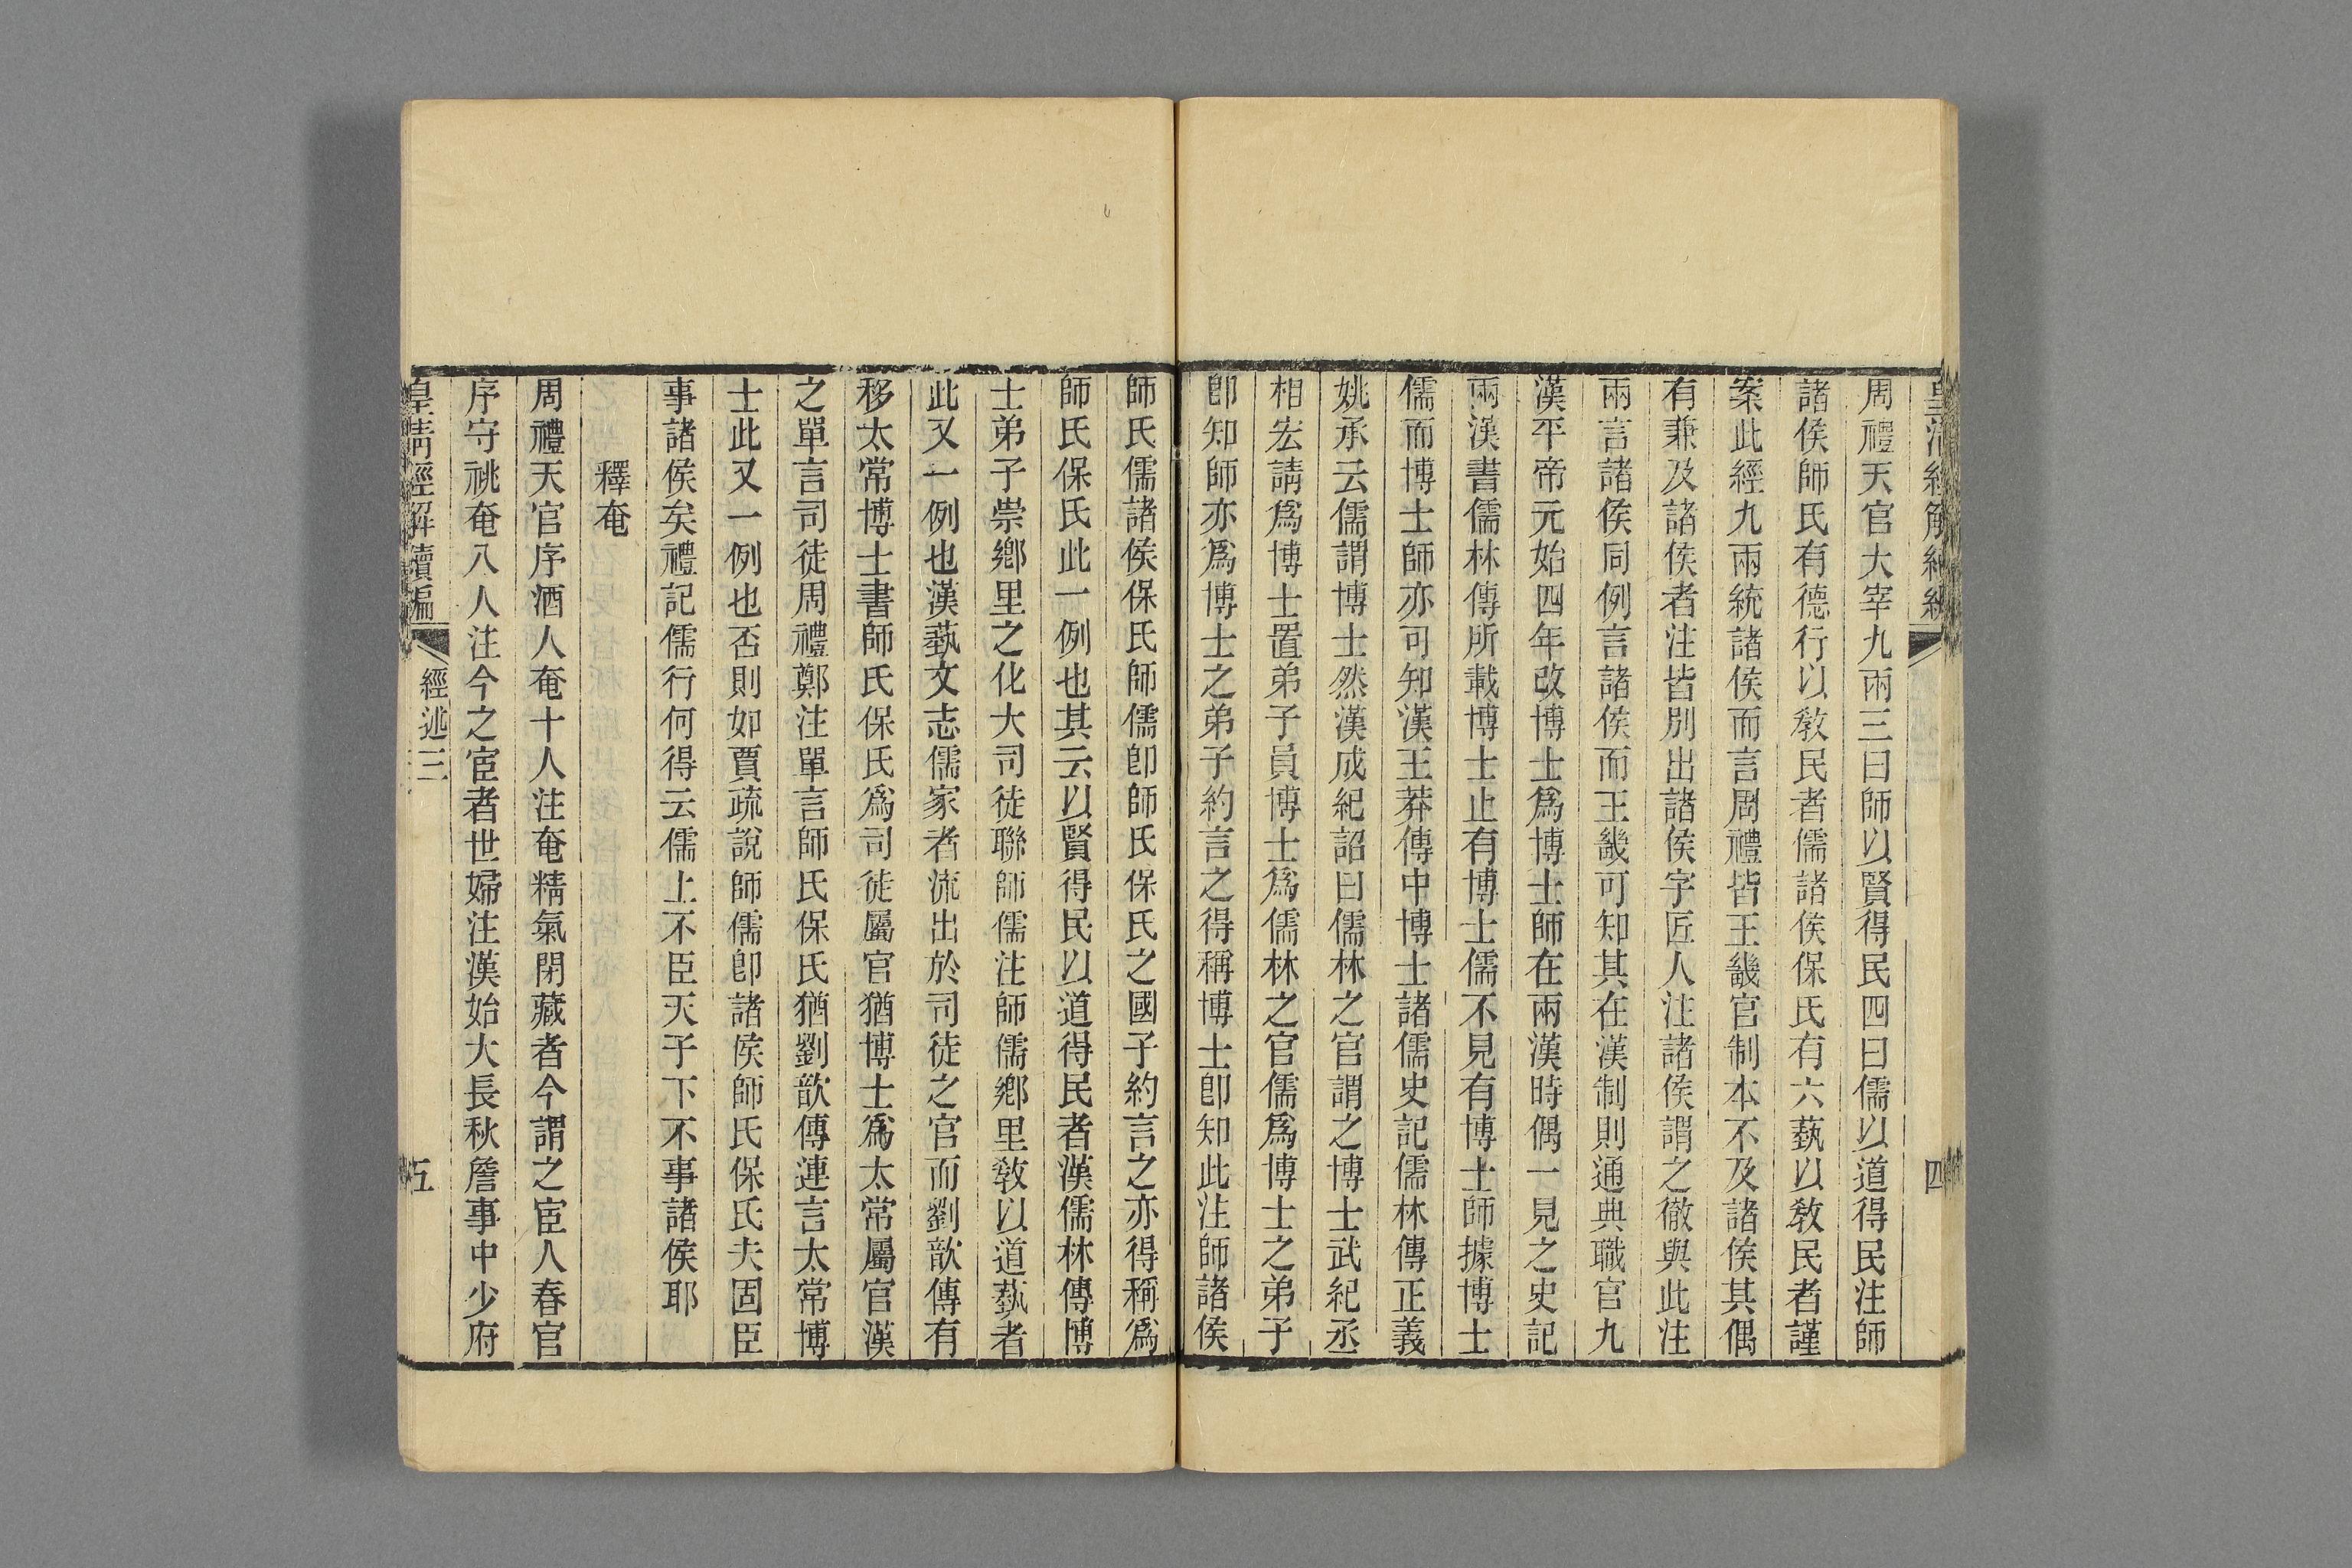 皇清經解續編
四
周禮天官大宰九兩三曰師以賢得民四曰儒以道得民注師
諸侯師氏有德行以敎民者儒諸侯保氏有六藝以敎民者謹
案此經九兩統諸侯而言周禮皆王畿官制本不及諸侯其偶
有兼及諸侯者注皆別出諸侯字匠人注諸侯謂之徹與此注
兩言諸侯同例言諸侯而王畿可知其在漢制則通典職官九
漢平帝元始四年改博士爲博士師在兩漢時偶一見之史記
兩漢書儒林傳所載博士止有博士儒不見有博士師據博士
儒而博士師亦可知漢王莽傳中博士諸儒史記儒林傳正義
姚承云儒謂博士然漢成紀詔曰儒林之官謂之博士武紀丞
相宏請爲博士置弟子員博士爲儒林之官儒爲博士之弟子
卽知師亦爲博士之弟子約言之得稱博士卽知此注師諸侯
師氏儒諸侯保氏師儒卽師氏保氏之國子約言之亦得稱爲
師氏保氏此一例也其云以賢得民以道得民者漢儒林傳博
士弟子崇鄕里之化大司徒聯師儒注師儒鄕里敎以道藝者
此又一例也漢藝文志儒家者流出於司徒之官而劉歆傳有
移太常博士書師氏保氏爲司徒屬官猶博士爲太常屬官漢
之單言司徒周禮鄭注單言師氏保氏猶劉歆傳連言太常博
士此又一例也否則如賈疏說師儒卽諸侯師氏保氏夫固臣
事諸侯矣禮記儒行何得云儒上不臣天子下不事諸侯耶
釋奄
周禮天官序酒人奄十人注奄精氣閉藏者今謂之宦人春官
序守祧奄八人注今之宦者世婦注漢始大長秋詹事中少府
皇淸經解續編
經述三
五